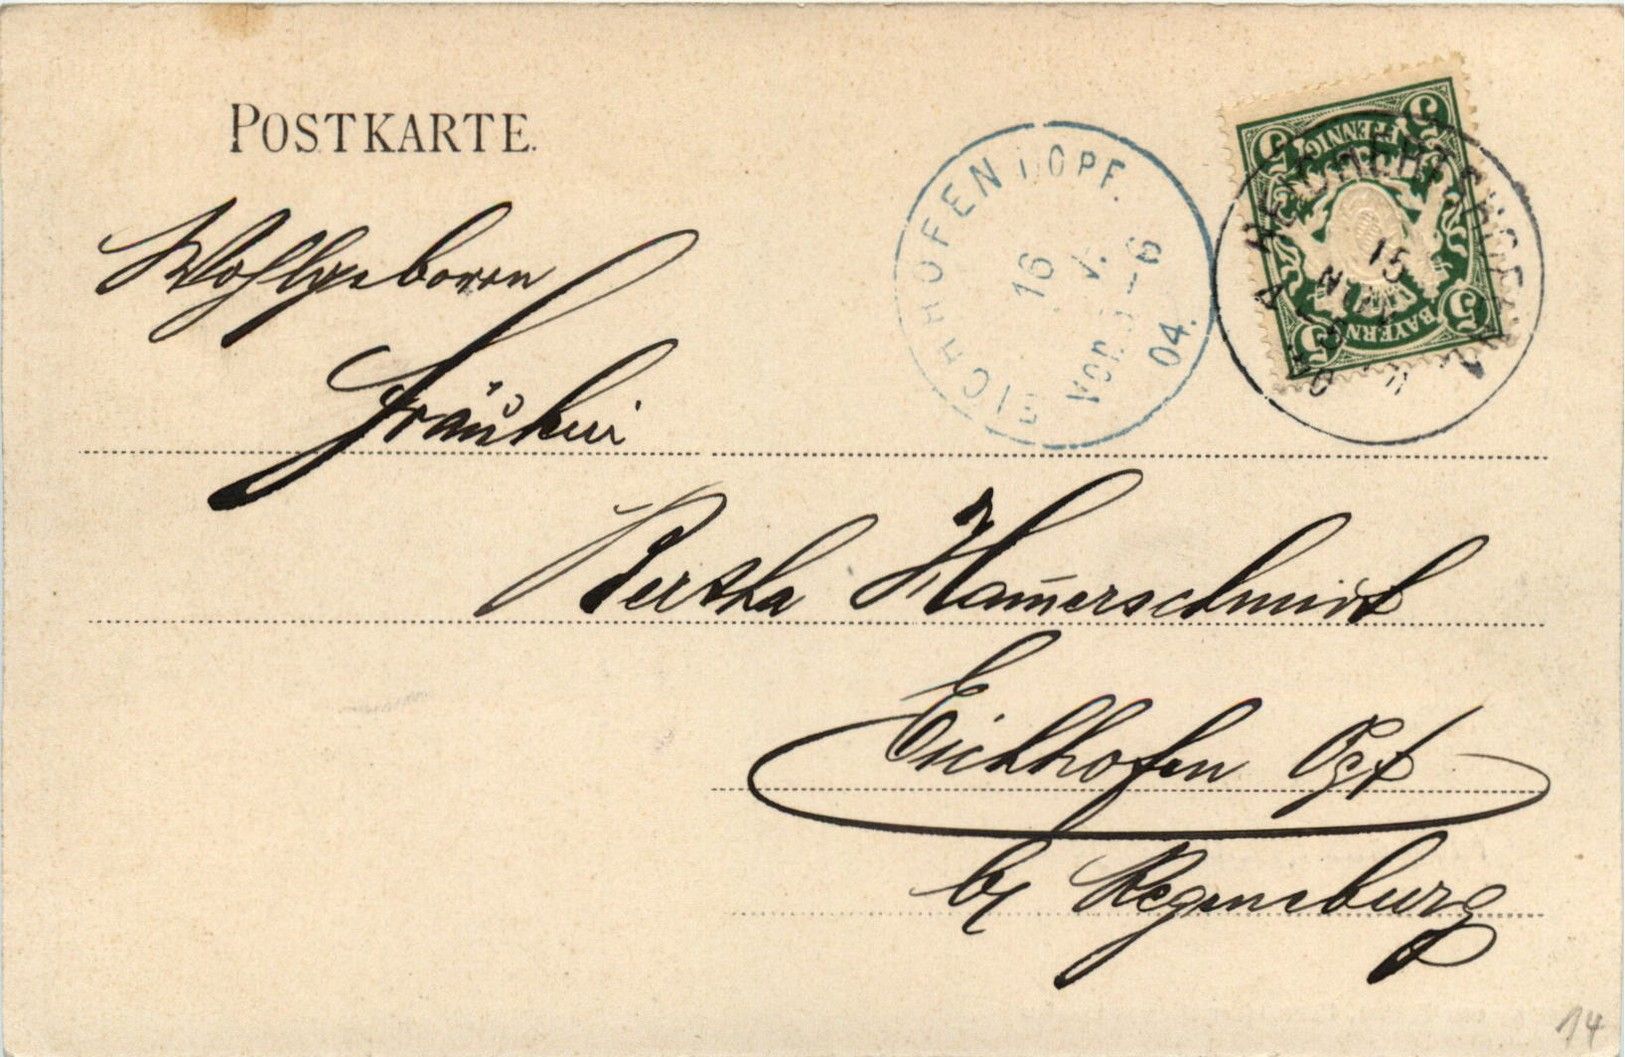 POSTKARTE.
EICHHOFEN I OPF.
16
V.
Vorm. 5–6
04.
5 PFENNIG 5
5 BAYERN 5
15
Wohlgeboren
Fräulein
Bertha Ham̄erschmidt
Eichhofen Opf
by Regensburg
14